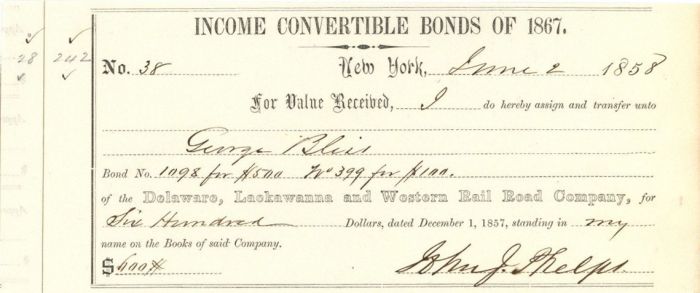 INCOME CONVERTIBLE BONDS OF 1867.
28 242
No. 38 New York, June 2 1858
For Value Received, I do hereby assign and transfer unto
George Bliss
Bond No. 1098 for $500 No 399 for $100.
of the Delaware, Lackawanna and Western Rail Road Company, for
Six Hundred Dollars, dated December 1, 1857, standing in my
name on the Books of said Company.
$ 600 John J. Phelps